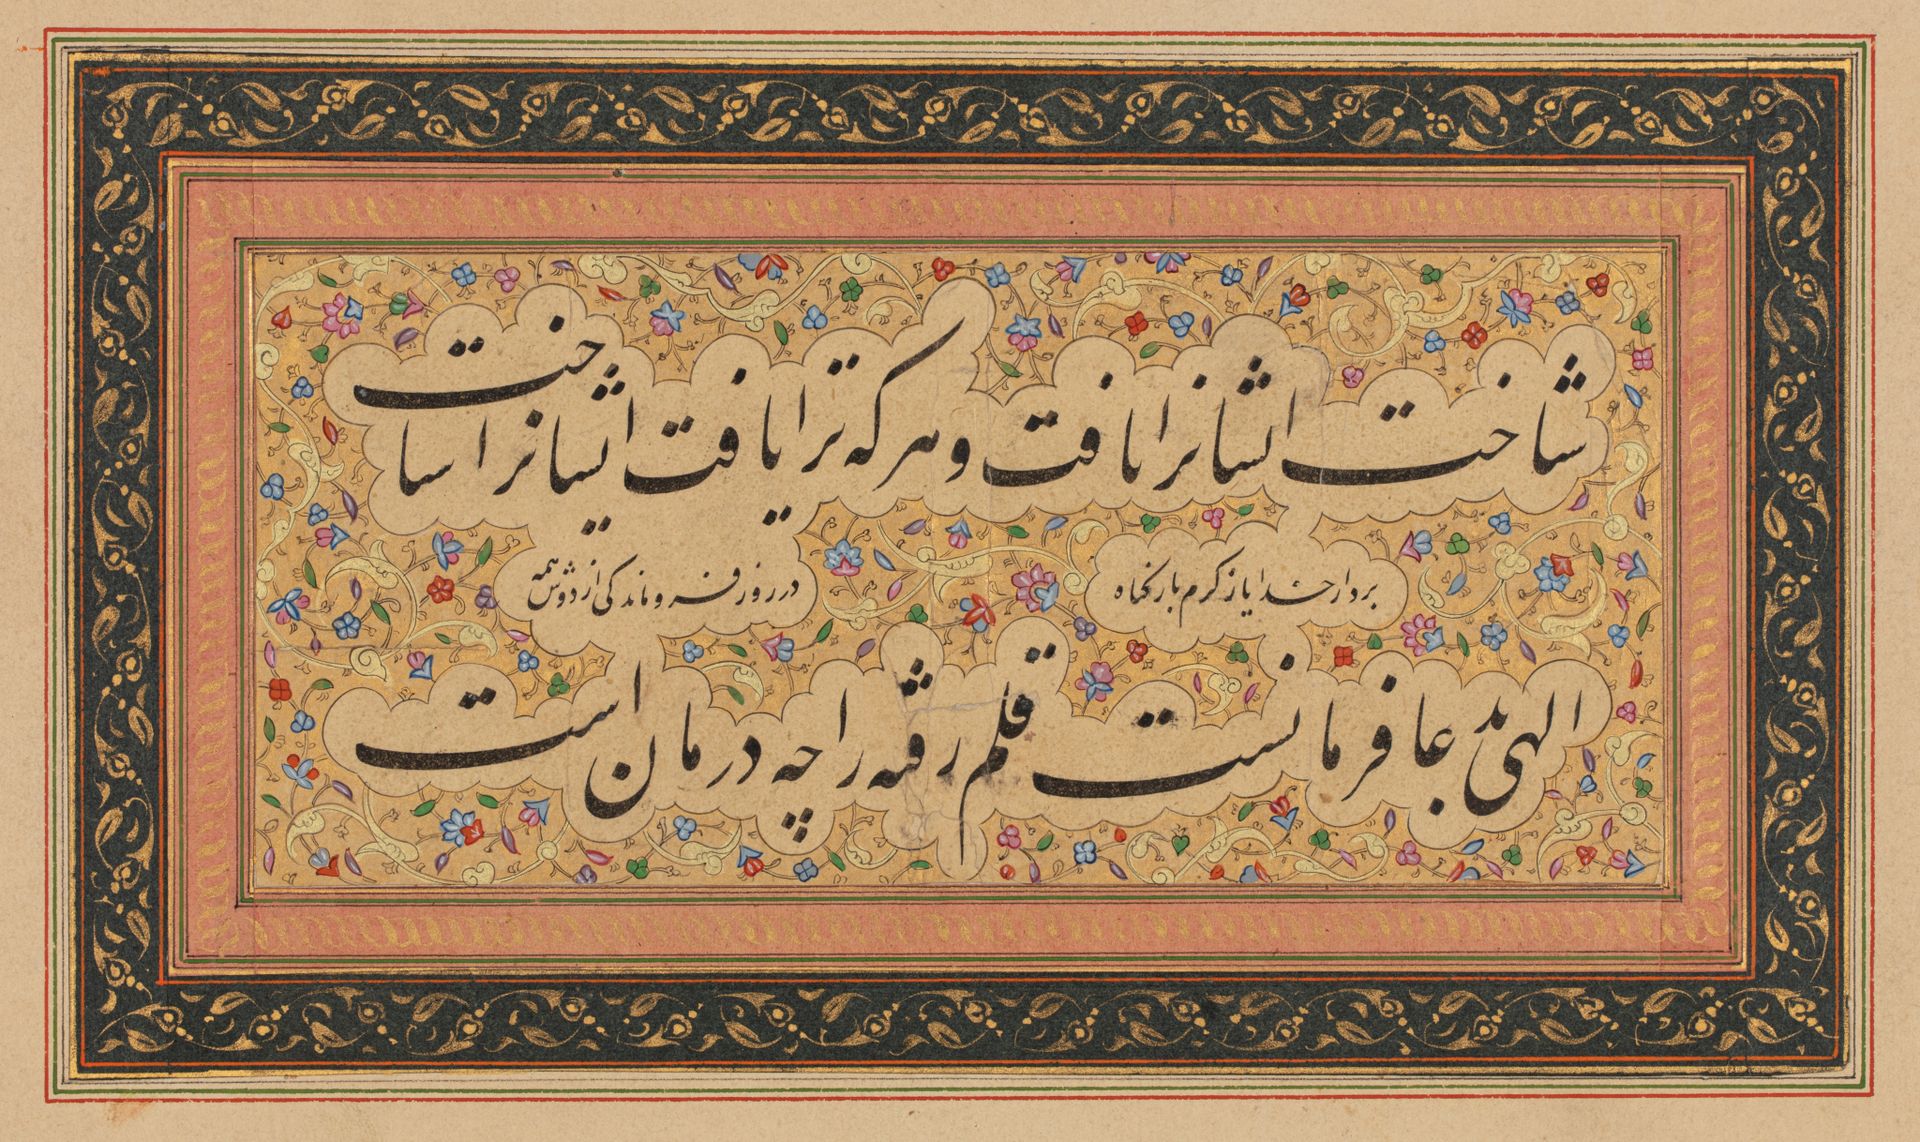 شاخت ایشانرا یافت و هر که ترا یافت ایشانرا شاخت
بردار خدایا ز کرم بار گناه
در روز فروماندگی از دوش همه
الهی بدعا فرمانست
قلم رفته را چه درمان است